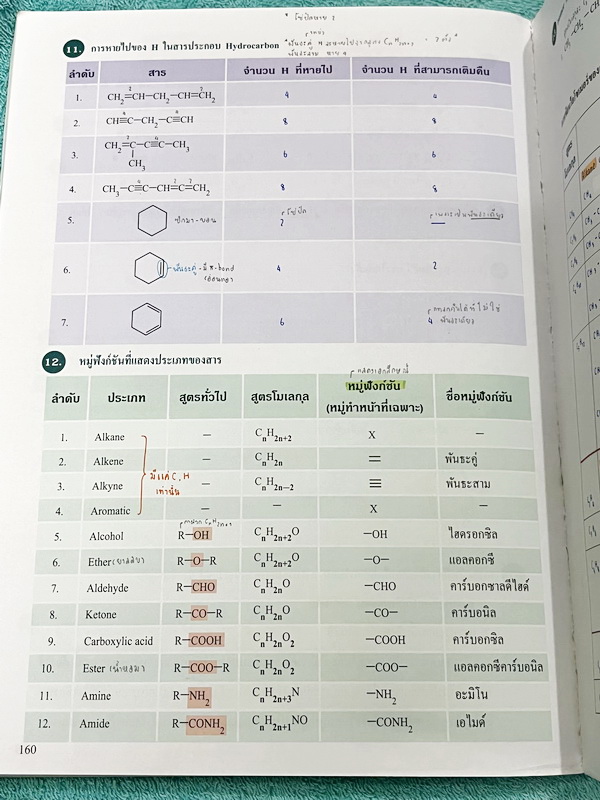 * ไซปิดหาย 2
11. การหายไปของ H ในสารประกอบ Hydrocarbon
ลำดับ สาร จำนวน H ที่หายไป จำนวน H ที่สามารถเติมคืน
1. CH₂=CH—CH₂—CH=CH₂ 4 4
2. CH≡C—CH₂—C≡CH 8 8
3. CH₂=C—C≡C—CH₃ 6 6
CH₃
4. CH₃—C≡C—CH=C=CH₂ 8 8
5. 2 —
6. พันธะคู่ - มี π-bond 4 2
7. 6 4
12. หมู่ฟังก์ชันที่แสดงประเภทของสาร
ลำดับ ประเภท สูตรทั่วไป สูตรโมเลกุล หมู่ฟังก์ชัน (หมู่ทำหน้าที่เฉพาะ) ชื่อหมู่ฟังก์ชัน
1. Alkane — CnH2n+2 X —
2. Alkene — CnH2n = พันธะคู่
มีแค่ C, H เท่านั้น
3. Alkyne — CnH2n−2 ≡ พันธะสาม
4. Aromatic — — X —
5. Alcohol R—OH CnH2n+2O —OH ไฮดรอกซิล
6. Ether R—O—R CnH2n+2O —O— แอลคอกซี
7. Aldehyde R—CHO CnH2nO —CHO คาร์บอกซาลดีไฮด์
8. Ketone R—CO—R CnH2nO —CO— คาร์บอนิล
9. Carboxylic acid R—COOH CnH2nO₂ —COOH คาร์บอกซิล
10. Ester R—COO—R CnH2nO₂ —COO— แอลคอกซีคาร์บอนิล
11. Amine R—NH₂ CnH2n+3N —NH₂ อะมิโน
12. Amide R—CONH₂ CnH2n+1NO —CONH₂ เอไมด์
160